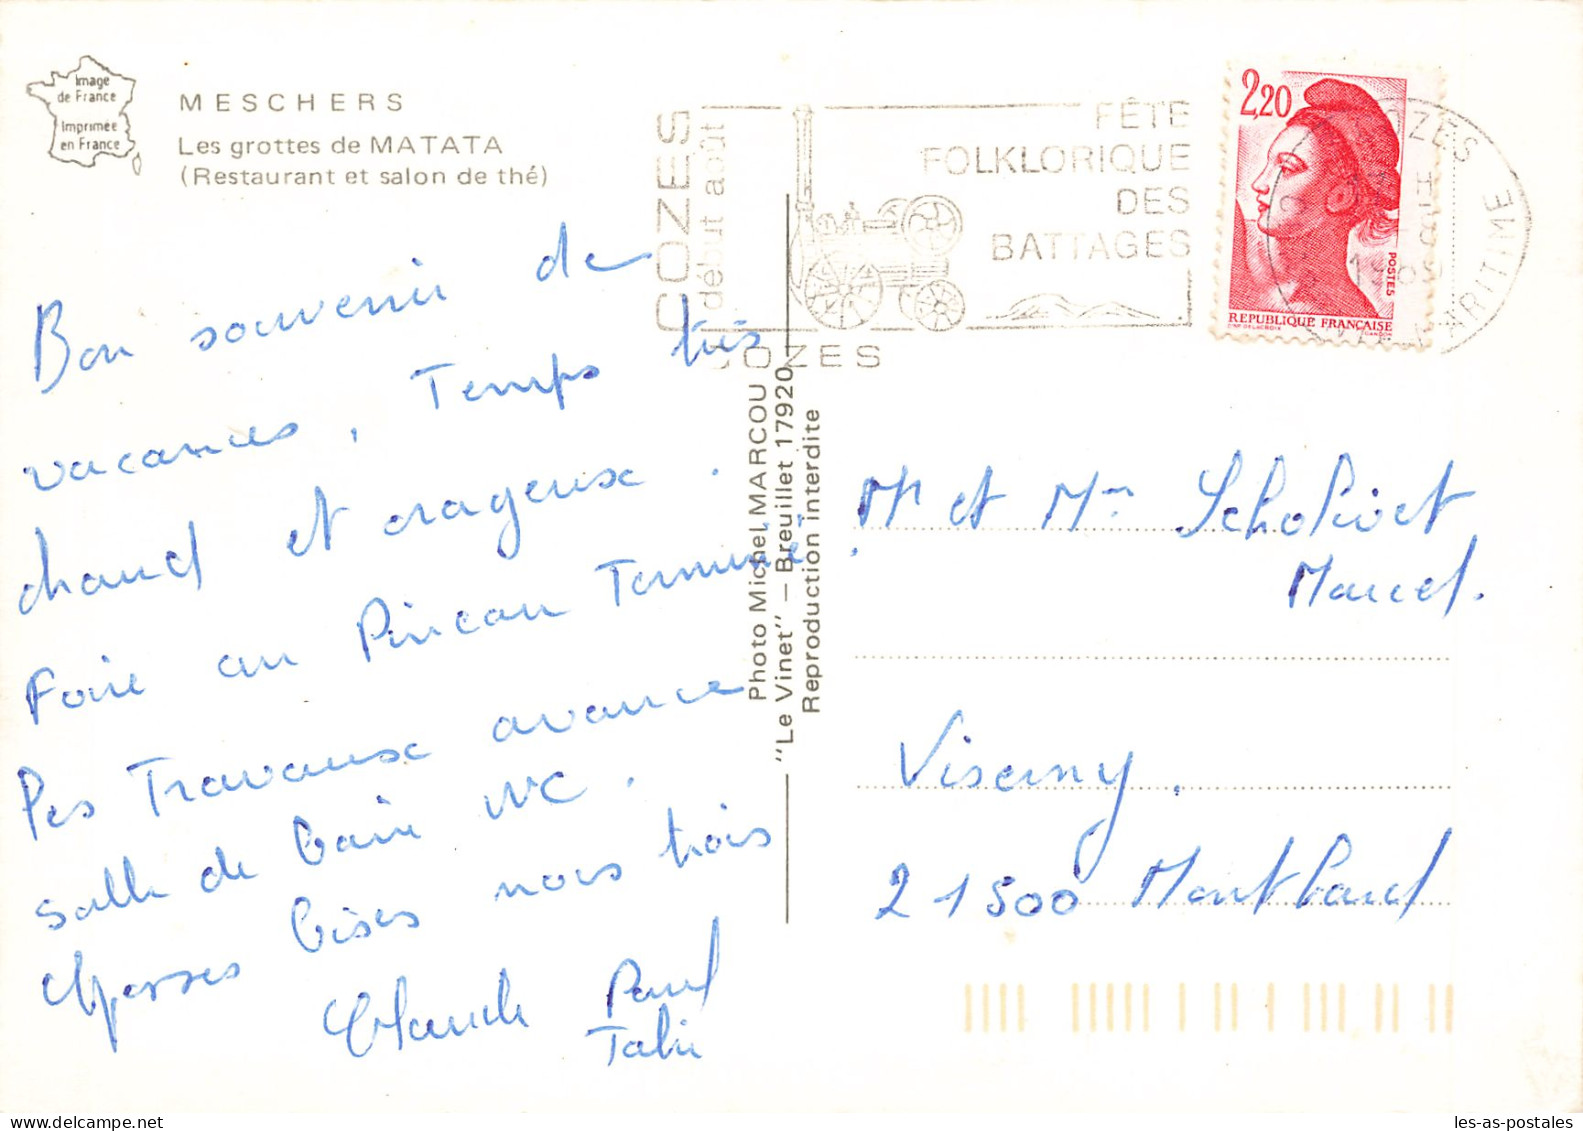 Image
de France
Imprimée
en France
MESCHERS
Les grottes de MATATA
(Restaurant et salon de thé)
COZES
début août
FÊTE
FOLKLORIQUE
DES
BATTAGES
COZES
2,20
POSTES
REPUBLIQUE FRANÇAISE
COZES
MARITIME
Bon souvenir de
vacances, Temps très
chaud et orageux.
Foire au Pineau Terminé.
Les Travaux avance
salle de bain WC.
Grosses bises nous trois
Claude Paul
Photo Michel MARCOU
"Le Vinet" – Breuillet 17920
Reproduction interdite
Mr et Mm Scholivet
Marcel.
Viserny.
21500 Montbard
les-as-postales